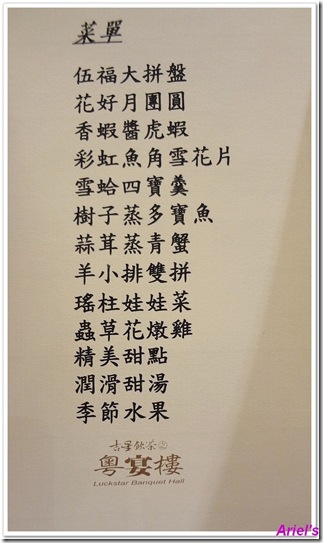 菜單
伍福大拼盤
花好月團圓
香蝦醬虎蝦
彩虹魚角雪花片
雪蛤四寶羹
樹子蒸多寶魚
蒜茸蒸青蟹
羊小排雙拼
瑤柱娃娃菜
蟲草花燉雞
精美甜點
潤滑甜湯
季節水果
吉星飲茶之
粵宴樓
Luckstar Banquet Hall
Ariel's